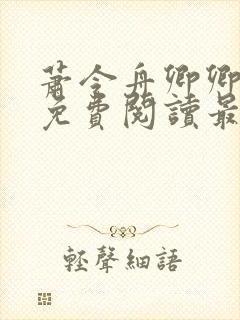 蕭令舟卿卿
免費閱讀最
輕聲細語